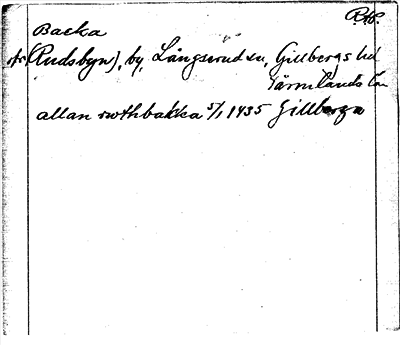 R.A.P.
Backa
(Rudsbyn), by, Långserud sn, Gillbergs hd
Värmlands län
allan ruthbakka 5/1 1435 Gillberga